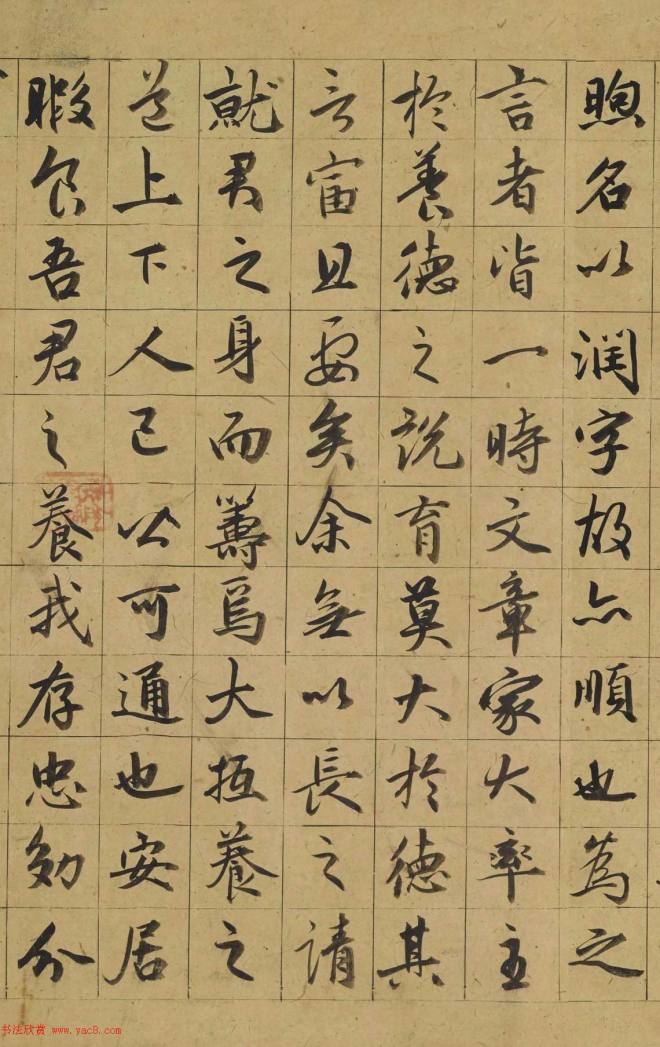 煦名以潤字故亦順也為之
言者皆一時文章家大率主
於養德之說育莫大於德其
言富且要矣余無以長之請
就君之身而籌焉大抵養之
道上下人己可通也安居
暇食吾君之養我存忠効分
书法欣赏 www.yac8.com